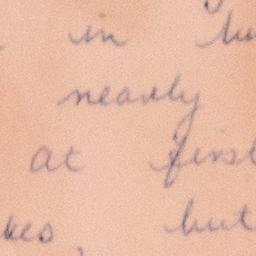 in
nearly
at first
but